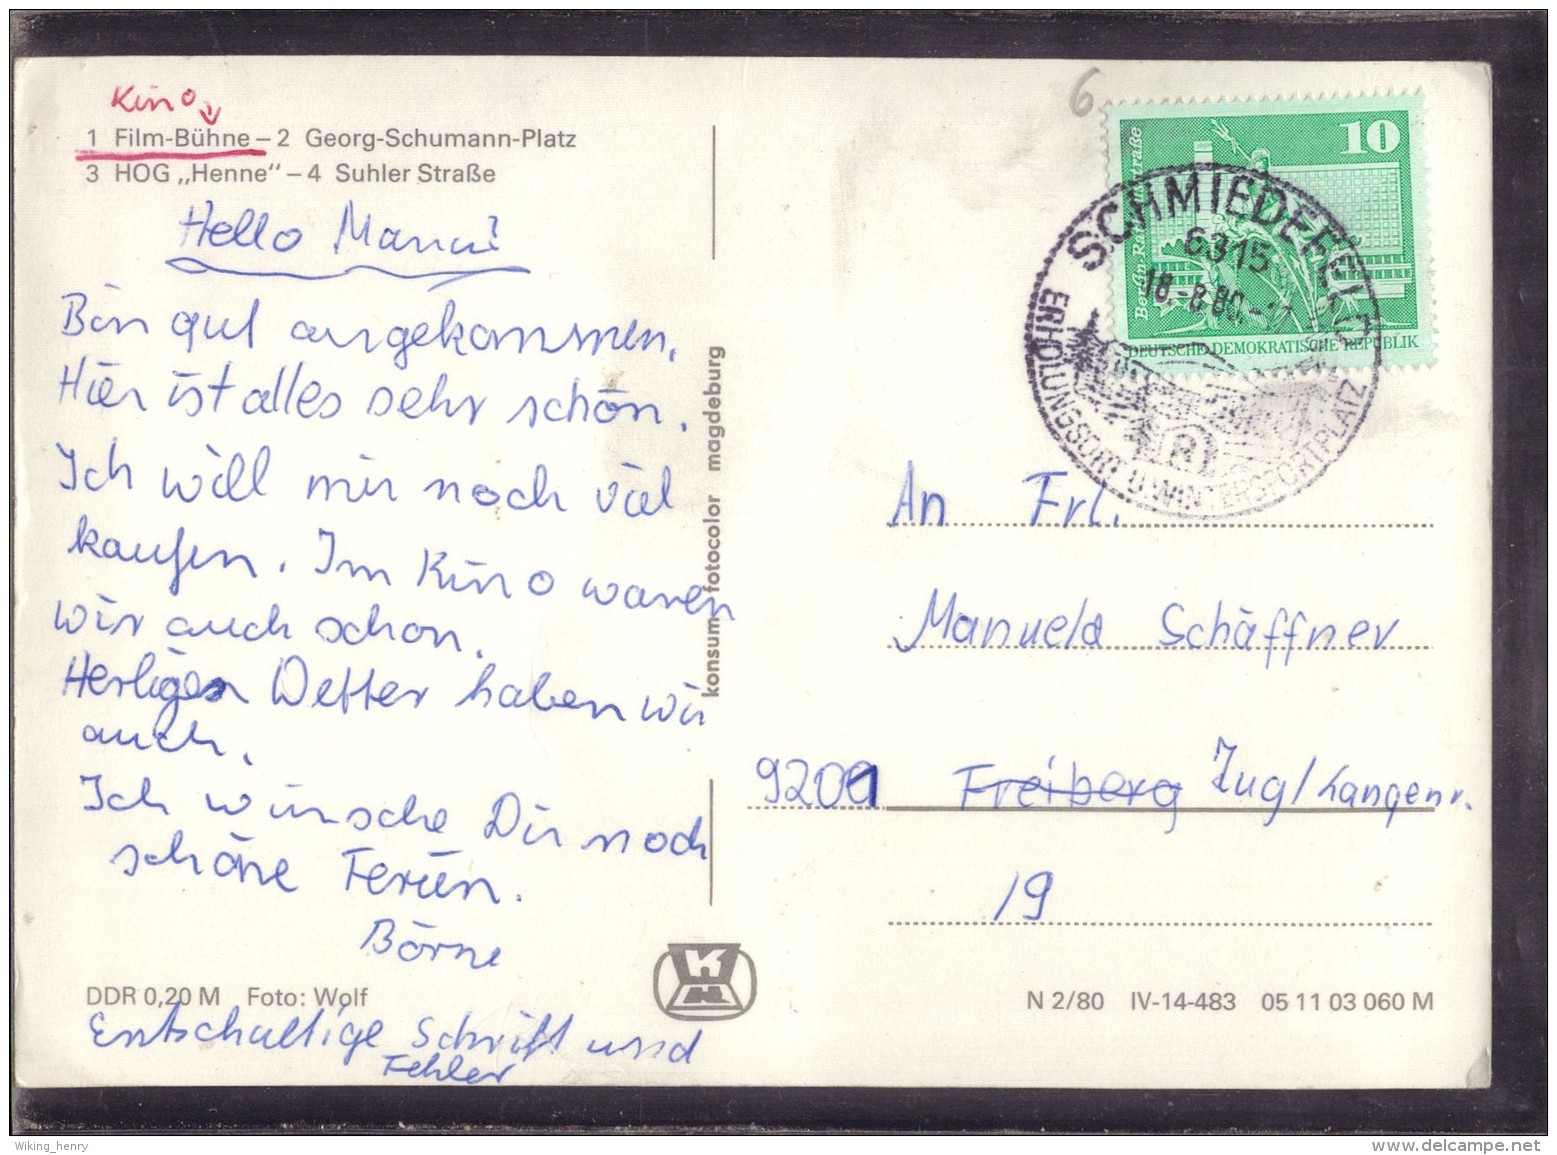 Kino
1 Film-Bühne – 2 Georg-Schumann-Platz
3 HOG „Henne“ – 4 Suhler Straße
Hello Manu!
Bin gut angekommen.
Hier ist alles sehr schön.
Ich will mir noch viel
kaufen. Im Kino waren
wir auch schon.
Herliges Wetter haben wir
auch.
Ich wünsche Dir noch
schöne Ferien.
Börne
DDR 0,20 M Foto: Wolf
Entschultige Schrift und
Fehler
konsum-fotocolor magdeburg
6
10
DEUTSCHE DEMOKRATISCHE REPUBLIK
SCHMIEDEFELD
6315
18.-8.80.-
ERHOLUNGSORT U. WINTERSPORTPLATZ
An Frl.
Manuela Schäffner
9201 Freiberg Zug/Langenr.
19
N 2/80 IV-14-483 05 11 03 060 M
Wiking_henry
delcampe.net